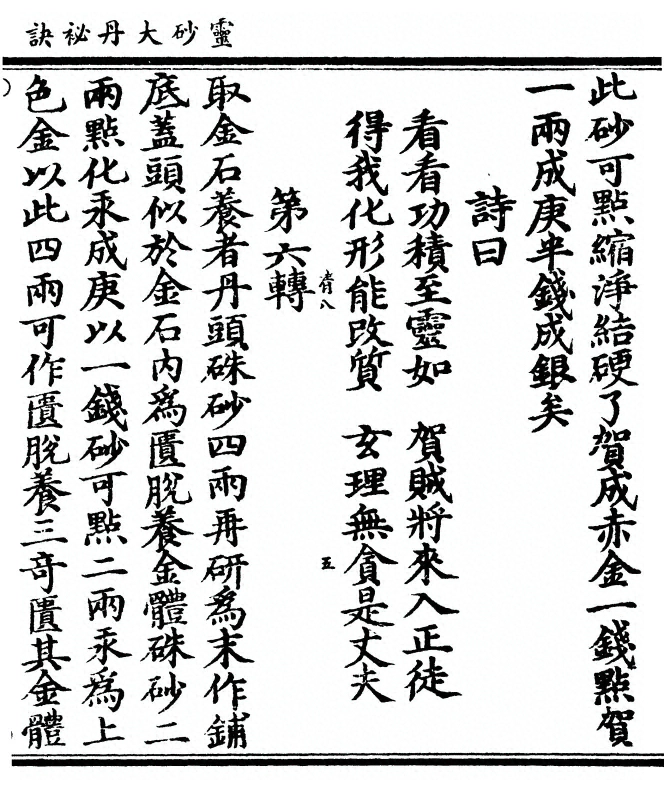 靈砂大丹祕訣
此砂可點縮淨結硬了賀成赤金一錢點賀
一兩成庚半錢成銀矣
詩曰
看看功積至靈如 賀賊將來入正徒
得我化形能改質 玄理無貪是丈夫
第六轉
取金石養者丹頭硃砂四兩再研爲末作鋪
底蓋頭似於金石內爲匱脫養金體硃砂二
兩點化汞成庚以一錢砂可點二兩汞爲上
色金以此四兩可作匱脫養三奇匱其金體
五